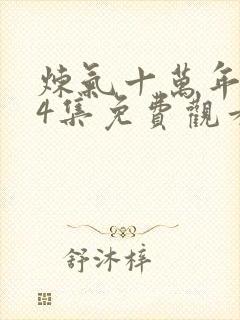 煉氣十萬年
4集免費觀
舒沐梓